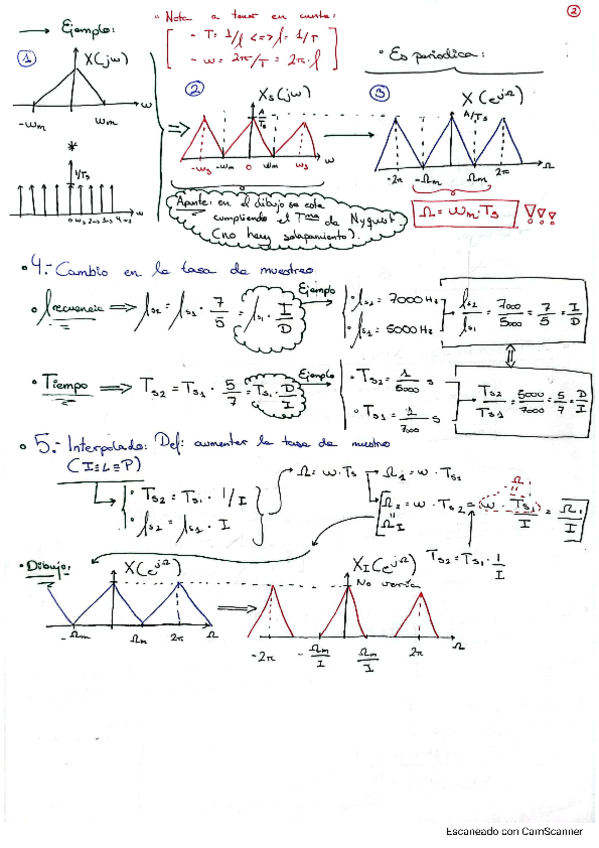 → Ejemplo:
• Nota a tener en cuenta:
- T = 1/f <=> f = 1/T
- w = 2π/T = 2π·f
②
• Es periodica:
① X(jw)
-wm wm w
*
1/Ts
0 ws 2ws 3ws 4ws w
② Xs(jw)
A/Ts
-ws -wm 0 wm ws w
③ X(e^jΩ)
A/Ts
-2π -Ωm Ωm 2π Ω
Apunte: en el dibujo se esta
cumpliendo el Tma de Nyquist
(no hay solapamiento).
Ω = wm·Ts !!!
• 4.- Cambio en la tasa de muestreo
• frecuencia ⟹ fs2 = fs1 · 7/5 = fs1 · I/D
Ejemplo
• fs2 = 7000 Hz
• fs1 = 5000 Hz
fs2/fs1 = 7000/5000 = 7/5 = I/D
• Tiempo ⟹ Ts2 = Ts1 · 5/7 = Ts1 · D/I
Ejemplo
• Ts2 = 1/5000 s
• Ts1 = 1/7000 s
Ts2/Ts1 = 5000/7000 = 5/7 = D/I
• 5.- Interpolado: Def: aumentar la tasa de mustro
(I≡L≡P)
• Ts2 = Ts1 · 1/I
• fs2 = fs1 · I
Ω = w·Ts
Ω1 = w·Ts1
Ω2 = w·Ts2 = w·Ts1/I = Ω1/I
ΩI
Ω1
Ts2 = Ts1 · 1/I
• Dibujo:
X(e^jΩ)
-Ωm Ωm 2π Ω
⟹
XI(e^jΩ)
No varía
-2π -Ωm/I Ωm/I 2π Ω
Escaneado con CamScanner